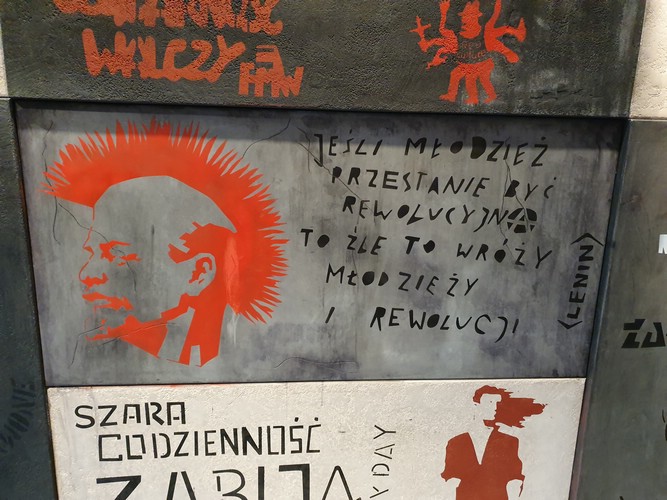 WALCZY Z
JEŚLI MŁODZIEŻ
PRZESTANIE BYĆ
REWOLUCYJNA
TO ŹLE TO WRÓŻY
MŁODZIEŻY
I REWOLUCJI
<LENIN>
SZARA
CODZIENNOŚĆ
ZABIJA
YDAY